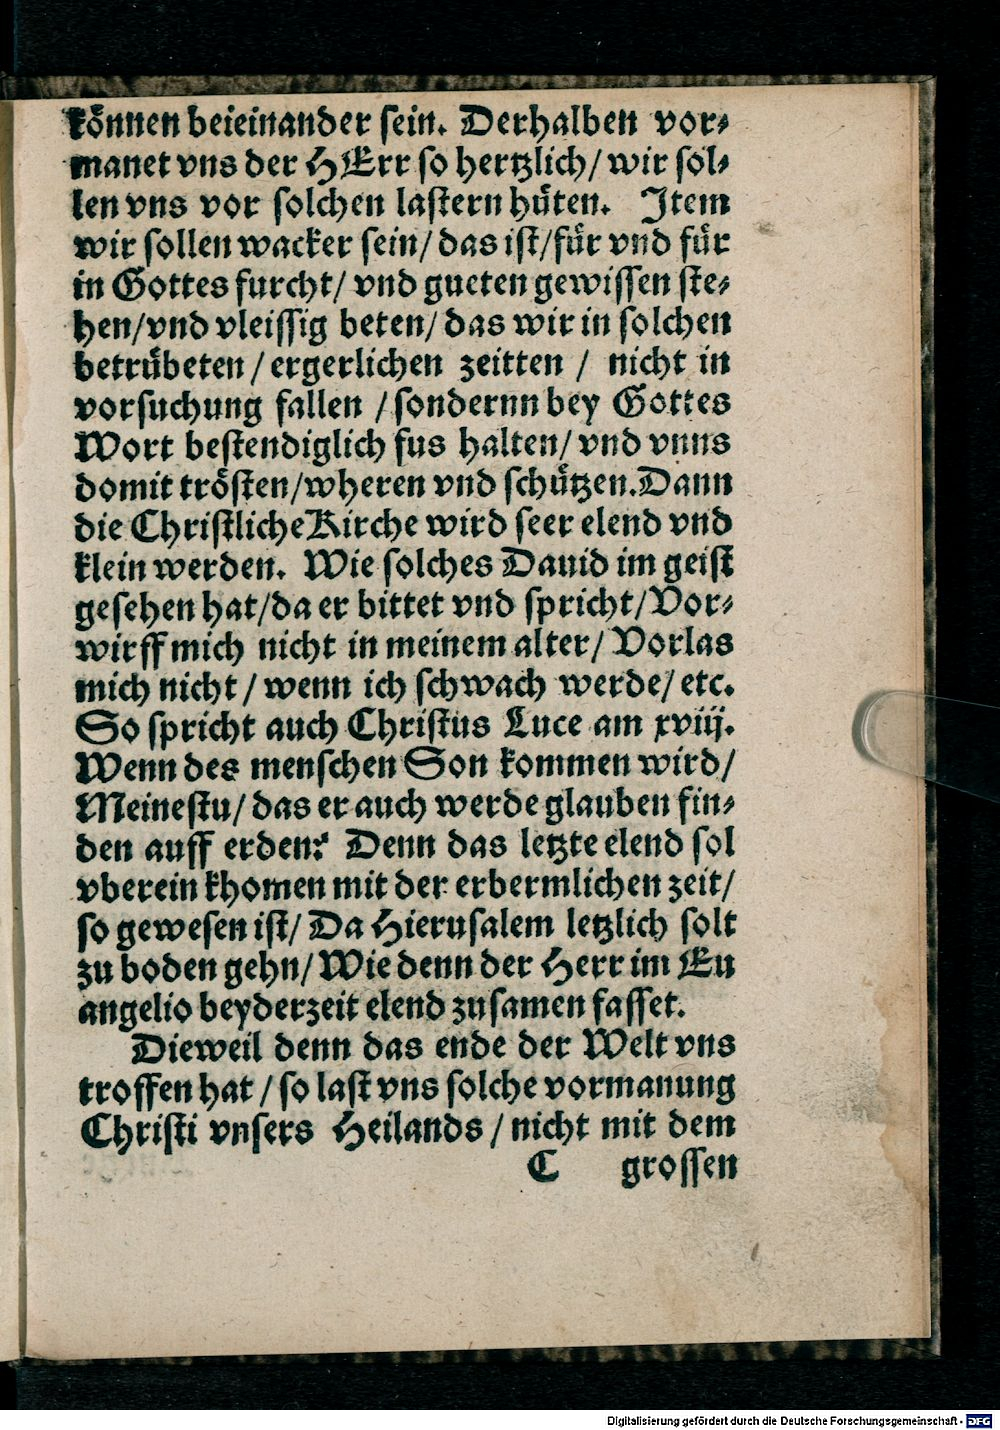 können beieinander sein. Derhalben vor⸗
manet vns der HErr so hertzlich/ wir sol⸗
len vns vor solchen lastern hüten. Item
wir sollen wacker sein/ das ist/ für vnd für
in Gottes furcht/ vnd gueten gewissen ste⸗
hen/ vnd vleissig beten/ das wir in solchen
betrübeten / ergerlichen zeitten / nicht in
vorsuchung fallen / sondernn bey Gottes
Wort bestendiglich fus halten/ vnd vnns
domit trösten/ wheren vnd schützen. Dann
die Christliche Kirche wird seer elend vnd
klein werden. Wie solches Dauid im geist
gesehen hat/ da er bittet vnd spricht/ Vor⸗
wirff mich nicht in meinem alter/ Vorlas
mich nicht / wenn ich schwach werde/ etc.
So spricht auch Christus Luce am xviij.
Wenn des menschen Son kommen wird/
Meinestu/ das er auch werde glauben fin⸗
den auff erden? Denn das letzte elend sol
vberein khomen mit der erbermlichen zeit/
so gewesen ist/ Da Hierusalem letzlich solt
zu boden gehn/ Wie denn der Herr im Eu
angelio beyderzeit elend zusamen fasset.
Dieweil denn das ende der Welt vns
troffen hat / so last vns solche vormanung
Christi vnsers Heilands / nicht mit dem
C grossen
Digitalisierung gefördert durch die Deutsche Forschungsgemeinschaft - DFG